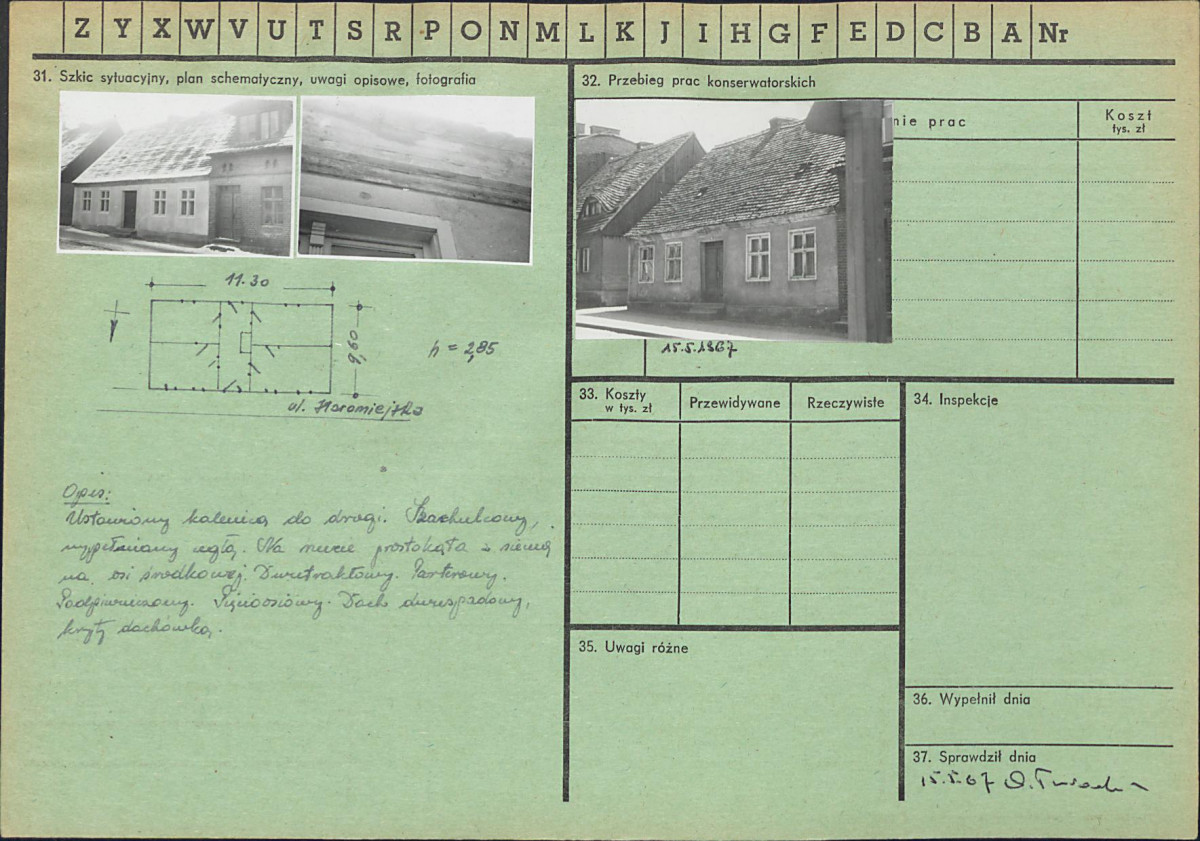 Z Y X W V U T S R P O N M L K J I H G F E D C B A Nr
31. Szkic sytuacyjny, plan schematyczny, uwagi opisowe, fotografia
11.30
9,60
h = 2,85
ul. Staromiejska
Opis:
Ustawiony kalenicą do drogi. Szachulcowy,
wypełniany cegłą. Na rzucie prostokąta z sienią
na osi środkowej. Dwutraktowy. Parterowy.
Podpiwniczony. Pięcioosiowy. Dach dwuspadowy,
kryty dachówką.
32. Przebieg prac konserwatorskich
nie prac
Koszt
tys. zł
15.5.1967
33. Koszty
w tys. zł
Przewidywane
Rzeczywiste
34. Inspekcje
35. Uwagi różne
36. Wypełnił dnia
37. Sprawdził dnia
15.5.67